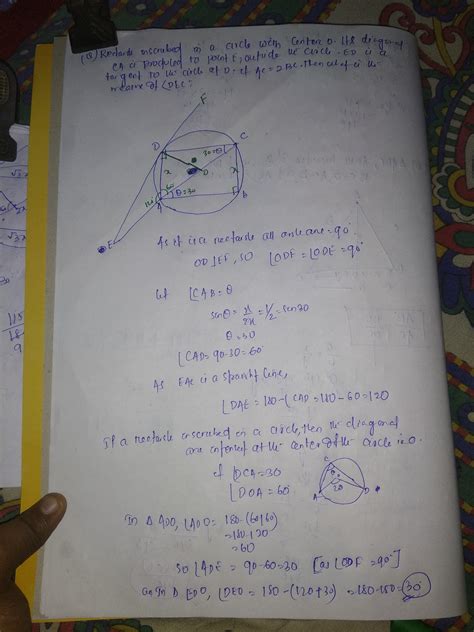 (Q) Rectangle inscribed in a circle with centre O. Its diagonal
CA is produced to point E, outside the circle. ED is a
tangent to the circle at D. If AC = 2BC. Then what is the
measure of ∠DEC:
F
D
C
30=θ
x
O
x
60
θ=30
120
A
B
E
As it is a rectangle all angle are = 90°
OD⊥EF, so ∠ODF = ∠ODE = 90°
Let ∠CAB = θ
senθ = x/2x = 1/2 = sen30
θ = 30
∠CAD = 90-30 = 60°
As EAC is a straight line,
∠DAE = 180-∠CAD = 180-60 = 120
If a rectangle inscribed in a circle, then the diagonal
are at the center of the circle is O.
if ∠DCA = 30
∠DOA = 60°
C
θ
2θ
A
D
In Δ ADO, ∠ADO = 180-(60+60)
= 180-120
= 60
So ∠ADE = 90-60 = 30 [as ∠ODF = 90°]
In Δ EDO, ∠DEO = 180-(120+30) = 180-150 = 30°